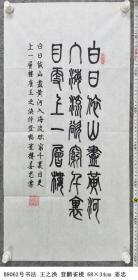 白日依山盡黃河
入海流欲窮千里
目更上一層樓
白日依山盡黃河入海流欲窮千里目更
上一層樓唐王之渙詩登鸛雀樓
B8062号书法 王之涣 登鹳雀楼 68×34cm